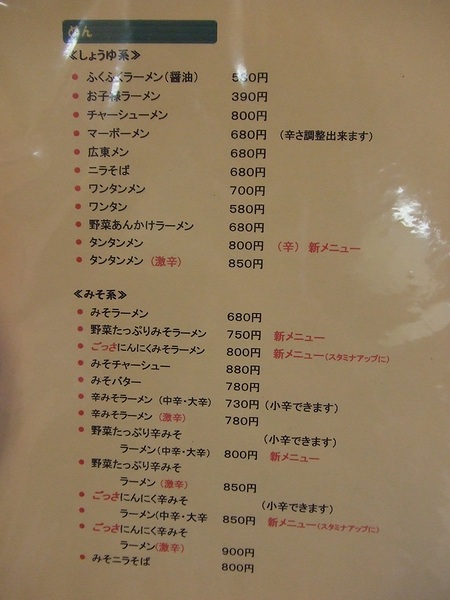 めん
≪しょうゆ系≫
ふくふくラーメン（醤油） 580円
お子様ラーメン 390円
チャーシューメン 800円
マーボーメン 680円 （辛さ調整出来ます）
広東メン 680円
ニラそば 680円
ワンタンメン 700円
ワンタン 580円
野菜あんかけラーメン 680円
タンタンメン 800円 （辛） 新メニュー
タンタンメン（激辛） 850円
≪みそ系≫
みそラーメン 680円
野菜たっぷりみそラーメン 750円 新メニュー
ごっさにんにくみそラーメン 800円 新メニュー（スタミナアップに）
みそチャーシュー 880円
みそバター 780円
辛みそラーメン（中辛・大辛） 730円（小辛できます）
辛みそラーメン（激辛） 780円
野菜たっぷり辛みそ （小辛できます）
ラーメン（中辛・大辛） 800円 新メニュー
野菜たっぷり辛みそ
ラーメン（激辛） 850円
ごっさにんにく辛みそ （小辛できます）
ラーメン（中辛・大辛 850円 新メニュー（スタミナアップに）
ごっさにんにく辛みそ
ラーメン（激辛） 900円
みそニラそば 800円